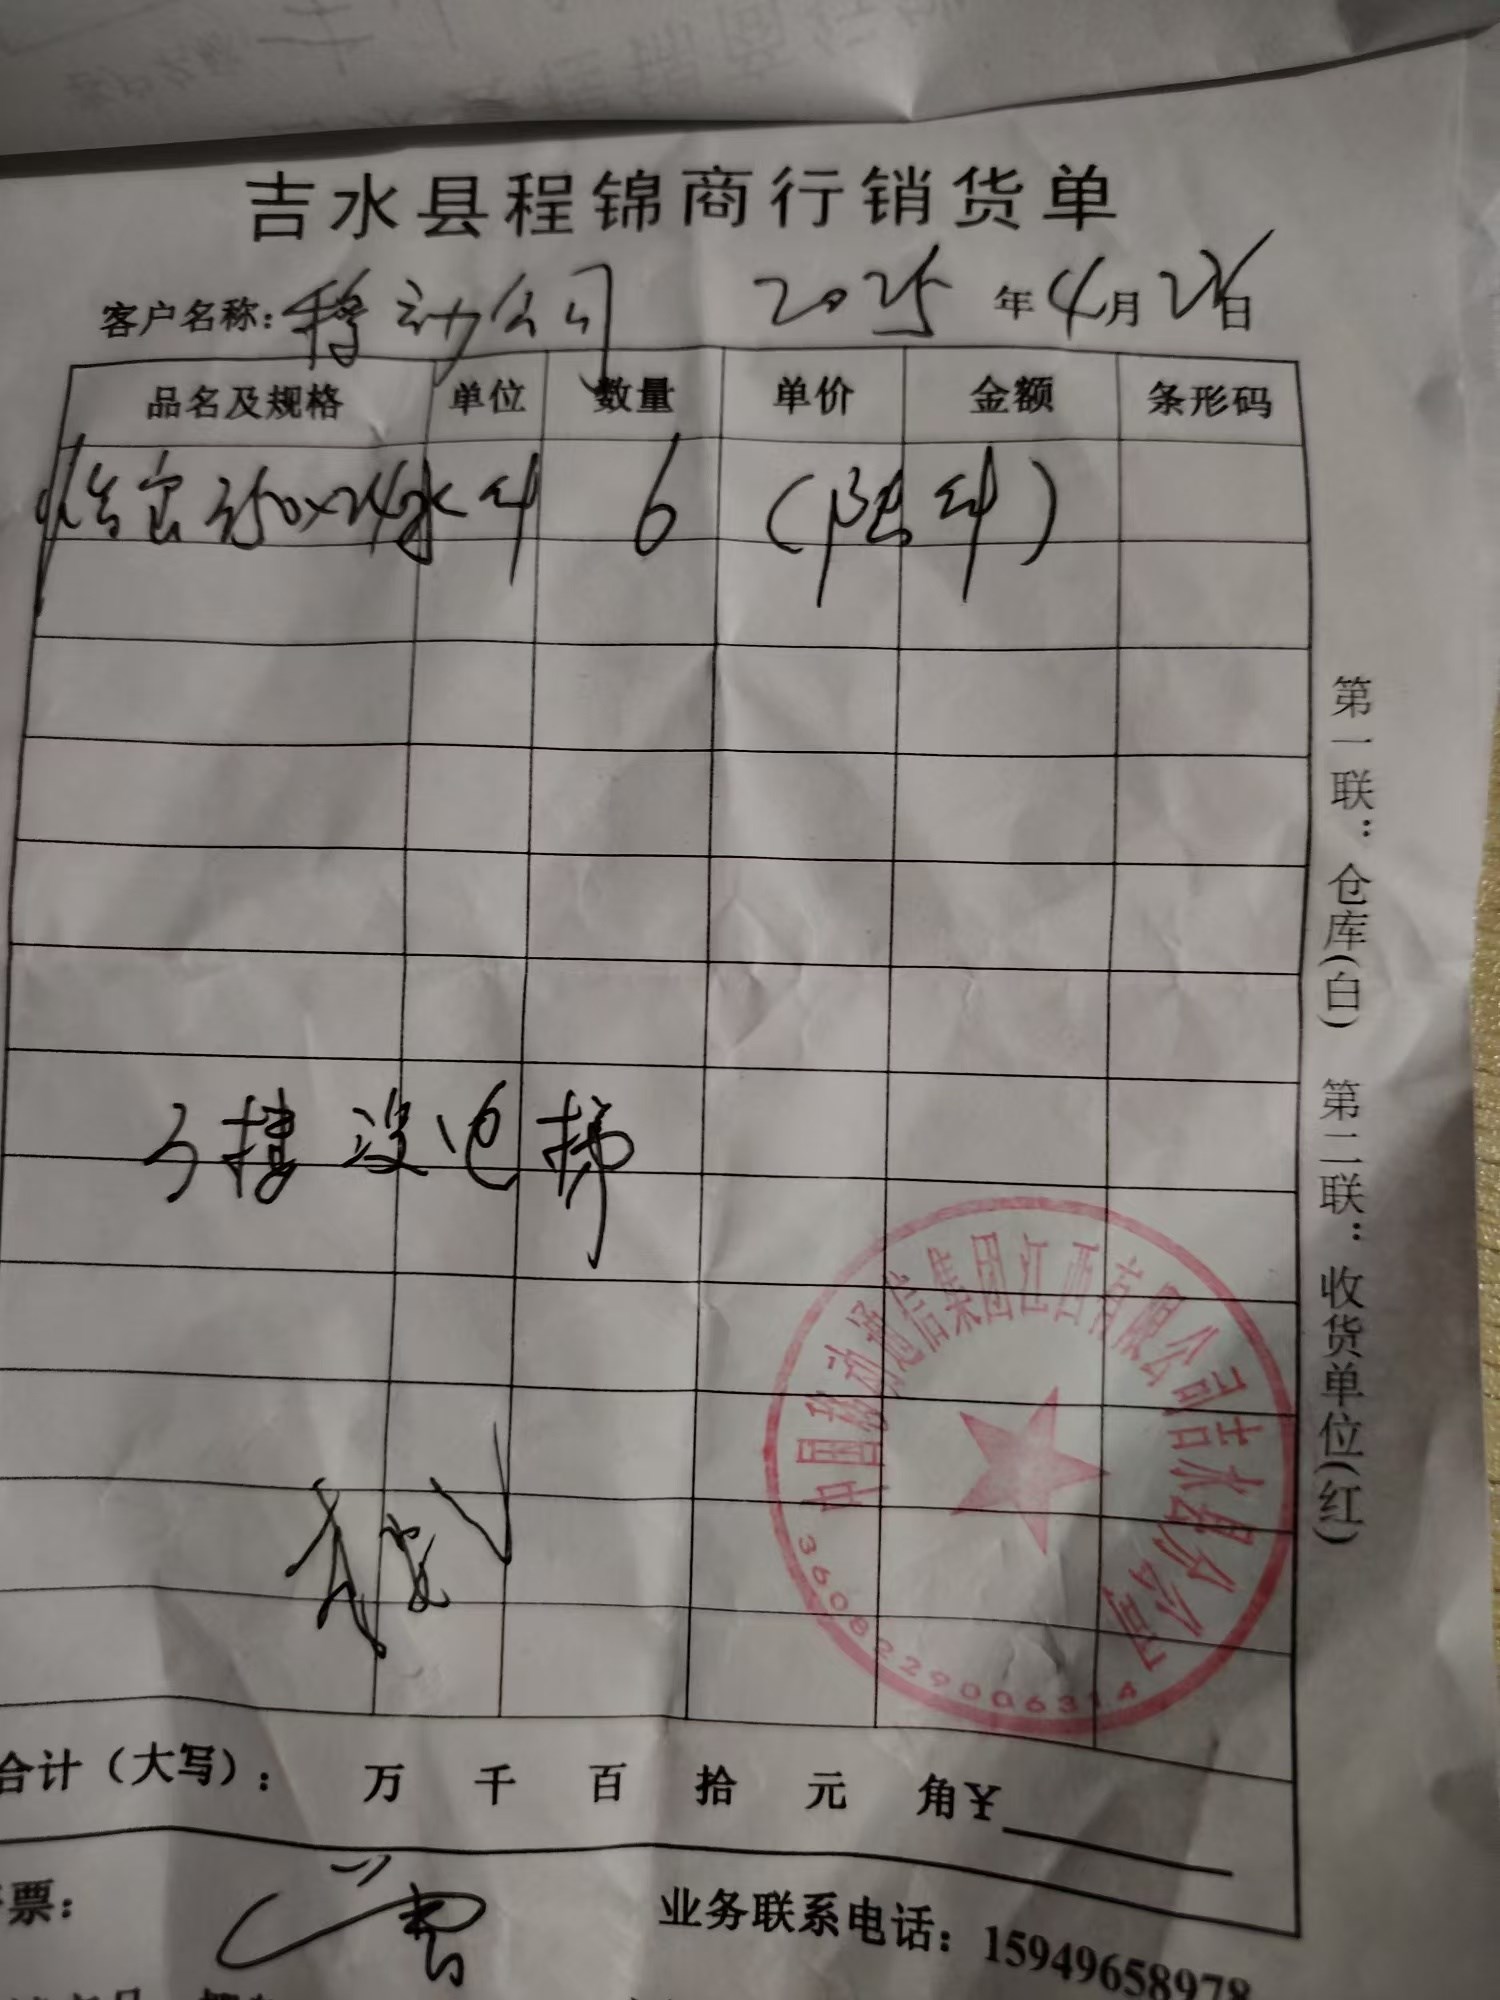 吉水县程锦商行销货单
客户名称: 移动公司 2025年4月28日
品名及规格 单位 数量 单价 金额 条形码
怡宝350×24水 件 6 (陆件)
3楼 没电梯
合计（大写）: 万 千 百 拾 元 角¥
票:
业务联系电话: 15949658978
第一联: 仓库(白) 第二联: 收货单位(红)
中国移动通信集团江西有限公司吉水县分公司
3608229006314